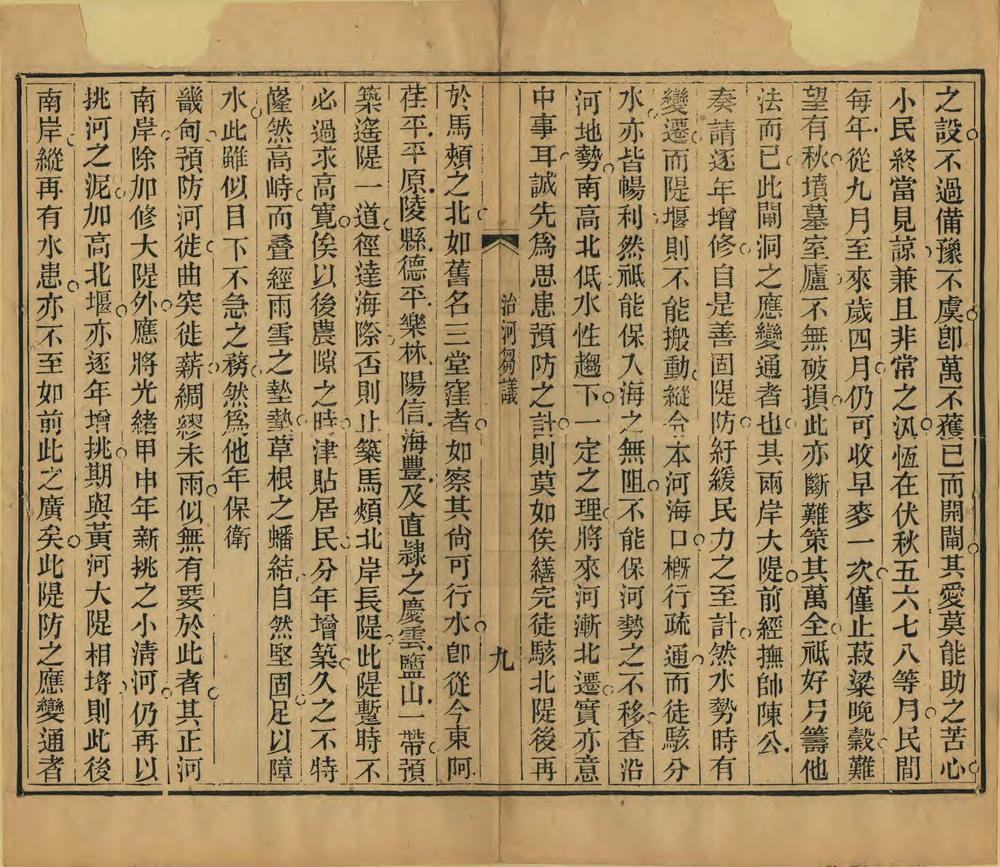 之設不過備豫不虞卽萬不獲已而開閘其愛莫能助之苦心
小民終當見諒兼且非常之汎恆在伏秋五六七八等月民間
每年從九月至來歲四月仍可收早麥一次僅止菽粱晚穀難
望有秋墳墓室廬不無破損此亦斷難策其萬全祗好另籌他
法而已此閘洞之應變通者也其兩岸大隄前經撫帥陳公
奏請逐年增修自是善固隄防紓緩民力之至計然水勢時有
變遷而隄堰則不能搬動縱令本河海口槪行疏通而徒駭分
水亦皆暢利然祗能保入海之無阻不能保河勢之不移查沿
河地勢南高北低水性趨下一定之理將來河漸北遷實亦意
中事耳誠先爲思患預防之計則莫如俟繕完徒駭北隄後再
治河芻議
九
於馬頰之北如舊名三堂窪者如察其尙可行水卽從今東阿
茌平平原陵縣德平樂林陽信海豐及直隸之慶雲鹽山一帶預
築遙隄一道徑達海際否則止築馬頰北岸長隄此隄蹔時不
必過求高寬俟以後農隙之時津貼居民分年增築久之不特
隆然高峙而疊經雨雪之墊草根之蟠結自然堅固足以障
水此雖似目下不急之務然爲他年保衛
畿甸預防河徙曲突徙薪綢繆未雨似無有要於此者其正河
南岸除加修大隄外應將光緒甲申年新挑之小清河仍再以
挑河之泥加高北堰亦逐年增挑期與黃河大隄相埓則此後
南岸縱再有水患亦不至如前此之廣矣此隄防之應變通者